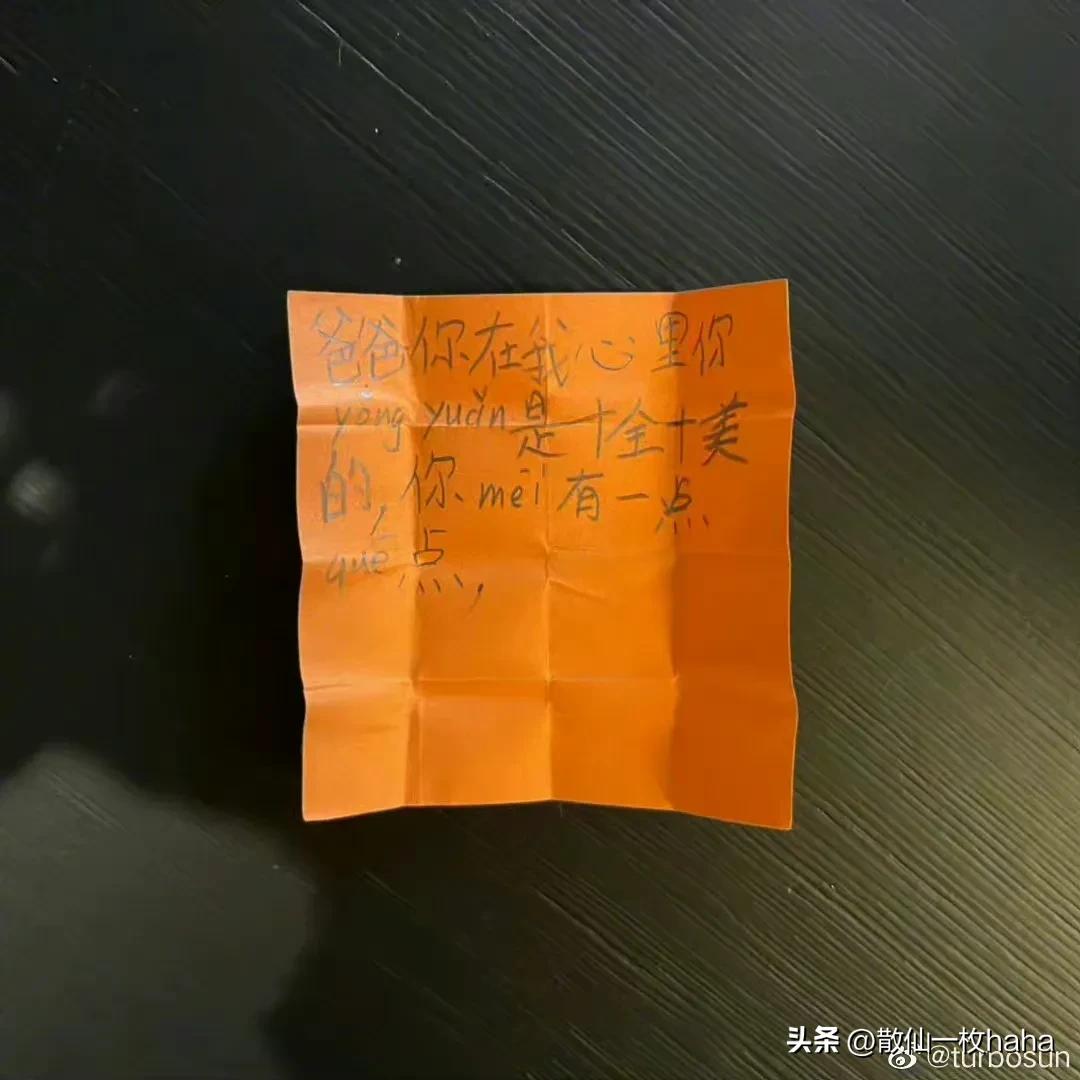 爸爸你在我心里你
yǒng yuǎn是十全十美
的,你méi有一点
quē点,
头条 @散仙一枚haha
@turbosun